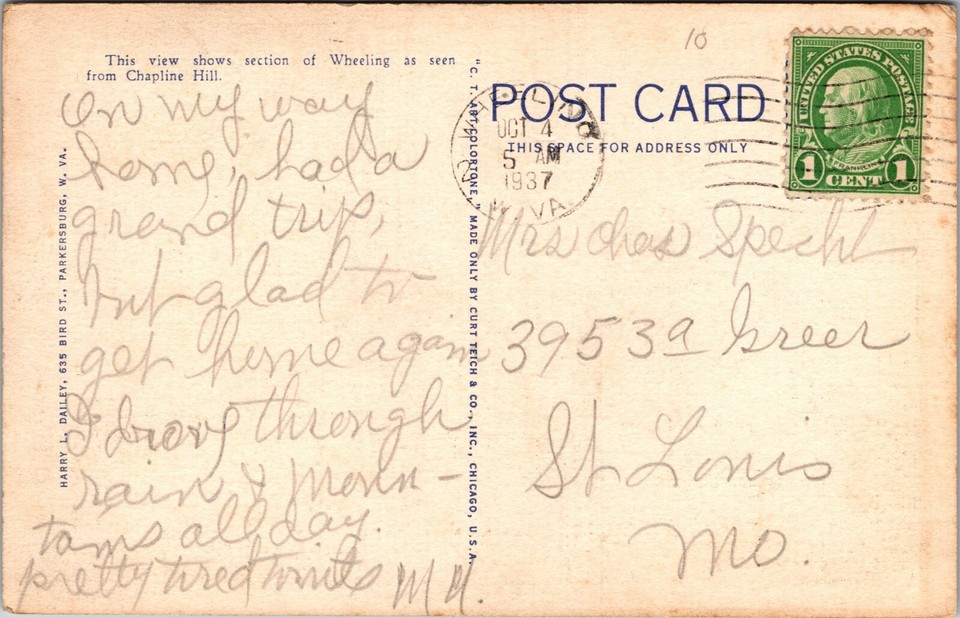 This view shows section of Wheeling as seen
from Chapline Hill.
On my way
home, had a
grand trip,
but glad to
get home again
I drove through
rain & Moun-
tains all day.
pretty tired tonite M H.
HARRY L. DAILEY, 635 BIRD ST., PARKERSBURG, W. VA.
"C. T. ART-COLORTONE," MADE ONLY BY CURT TEICH & CO., INC., CHICAGO, U.S.A.
10
POST CARD
THIS SPACE FOR ADDRESS ONLY
OCT 4
5 AM
1937
W. VA
UNITED STATES POSTAGE
FRANKLIN
1 CENT 1
Mrs Chas Specht
3953a Greer
St Louis
Mo.